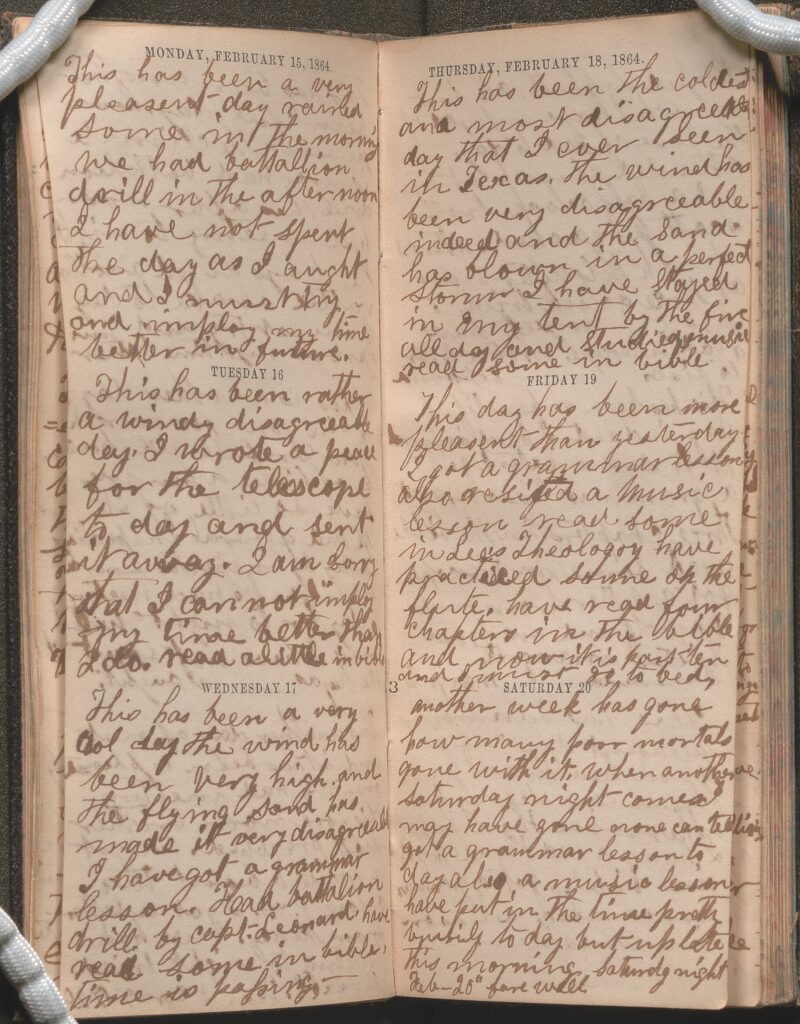 MONDAY, FEBRUARY 15, 1864.
This has been a very
pleasent day rained
some in the morning
we had battallion
drill in the afternoon
I have not spent
the day as I aught
and I must try
and imploy my time
better in future.
TUESDAY 16
This has been rather
a windy disagreeable
day. I wrote a peace
for the telescope
to day and sent
it away. I am sorry
that I can not imploy
my time better than
I do. read a little in bible
WEDNESDAY 17
This has been a very
col day the wind has
been very high. and
the flying sand has
made it very disagreeable
I have got a grammar
lesson. Had battalion
drill by capt. Leonard have
read some in bible.
time is passing.
THURSDAY, FEBRUARY 18, 1864.
This has been the coldest
and most disagreeable
day that I ever seen
in Texas. the wind has
been very disagreeable
indeed and the sand
has blown in a perfect
storm I have stayed
in my tent by the fire
all day and studied music
read some in bible
FRIDAY 19
This day has been more
pleasent than yesterday.
I got a grammar lesson
also a music
lesson read some
in Lees Theology have
practiced some on the
flute. have read four
chapters in the bible
and now it is past ten
and I must go to bed,
3
SATURDAY 20
another week has gone
how many poor mortals
gone with it. when another
saturday night comes I
may have gone none can tell
got a grammar lesson to
day also a music lesson
have put in the time pretty
buisily to day but up late
this morning. saturdy night
Feb-20" fare well